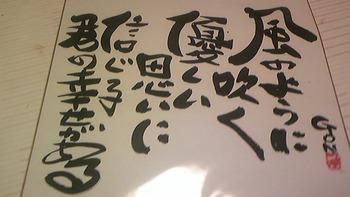 風のように
吹く
優しい
思いに
信じる
君の幸せがある